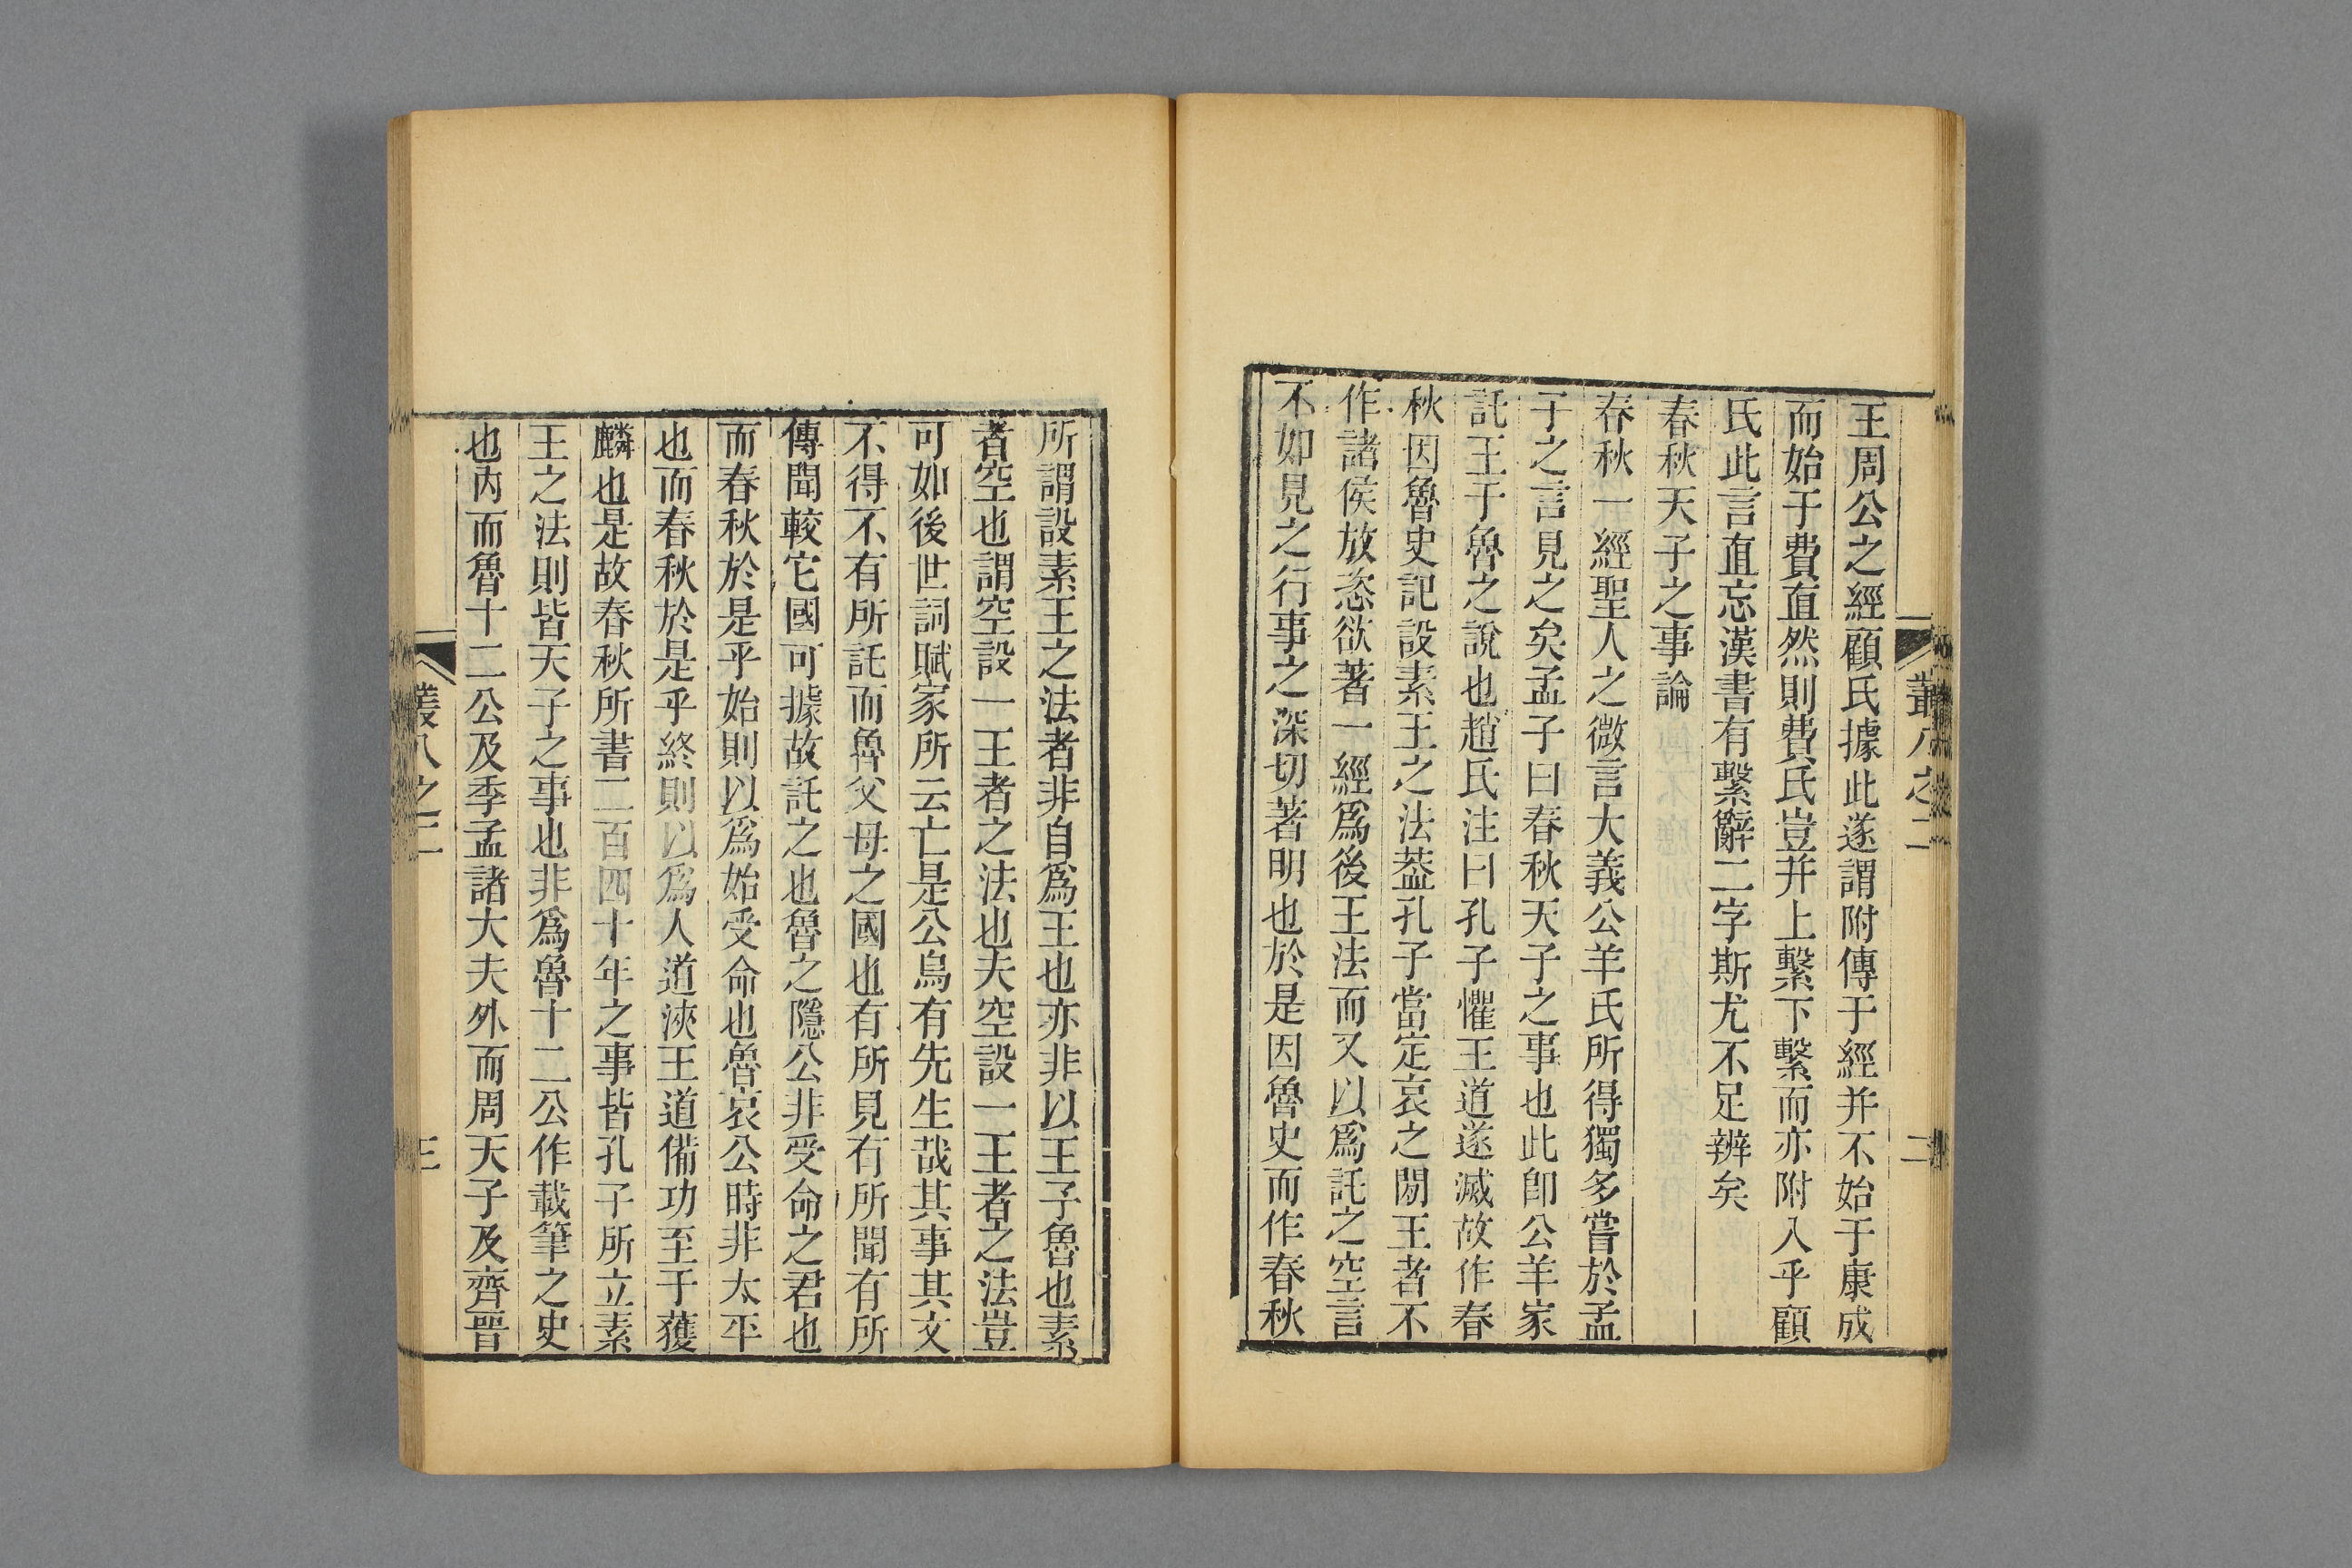 叢八之二
二
王周公之經顧氏據此遂謂附傳于經并不始于康成
而始于費直然則費氏豈并上繫下繫而亦附入乎顧
氏此言直忘漢書有繫辭二字斯尤不足辨矣
春秋天子之事論
春秋一經聖人之微言大義公羊氏所得獨多嘗於孟
子之言見之矣孟子曰春秋天子之事也此卽公羊家
託王于魯之說也趙氏注曰孔子懼王道遂滅故作春
秋因魯史記設素王之法葢孔子當定哀之閒王者不
作諸侯放恣欲著一經爲後王法而又以爲託之空言
不如見之行事之深切著明也於是因魯史而作春秋
所謂設素王之法者非自爲王也亦非以王予魯也素
者空也謂空設一王者之法也夫空設一王者之法豈
可如後世詞賦家所云亡是公烏有先生哉其事其文
不得不有所託而魯父母之國也有所見有所聞有所
傳聞較它國可據故託之也魯之隱公非受命之君也
而春秋於是乎始則以爲始受命也魯哀公時非太平
也而春秋於是乎終則以爲人道浹王道備功至于獲
麟也是故春秋所書二百四十年之事皆孔子所立素
王之法則皆天子之事也非爲魯十二公作載筆之史
也內而魯十二公及季孟諸大夫外而周天子及齊晉
叢八之二
三